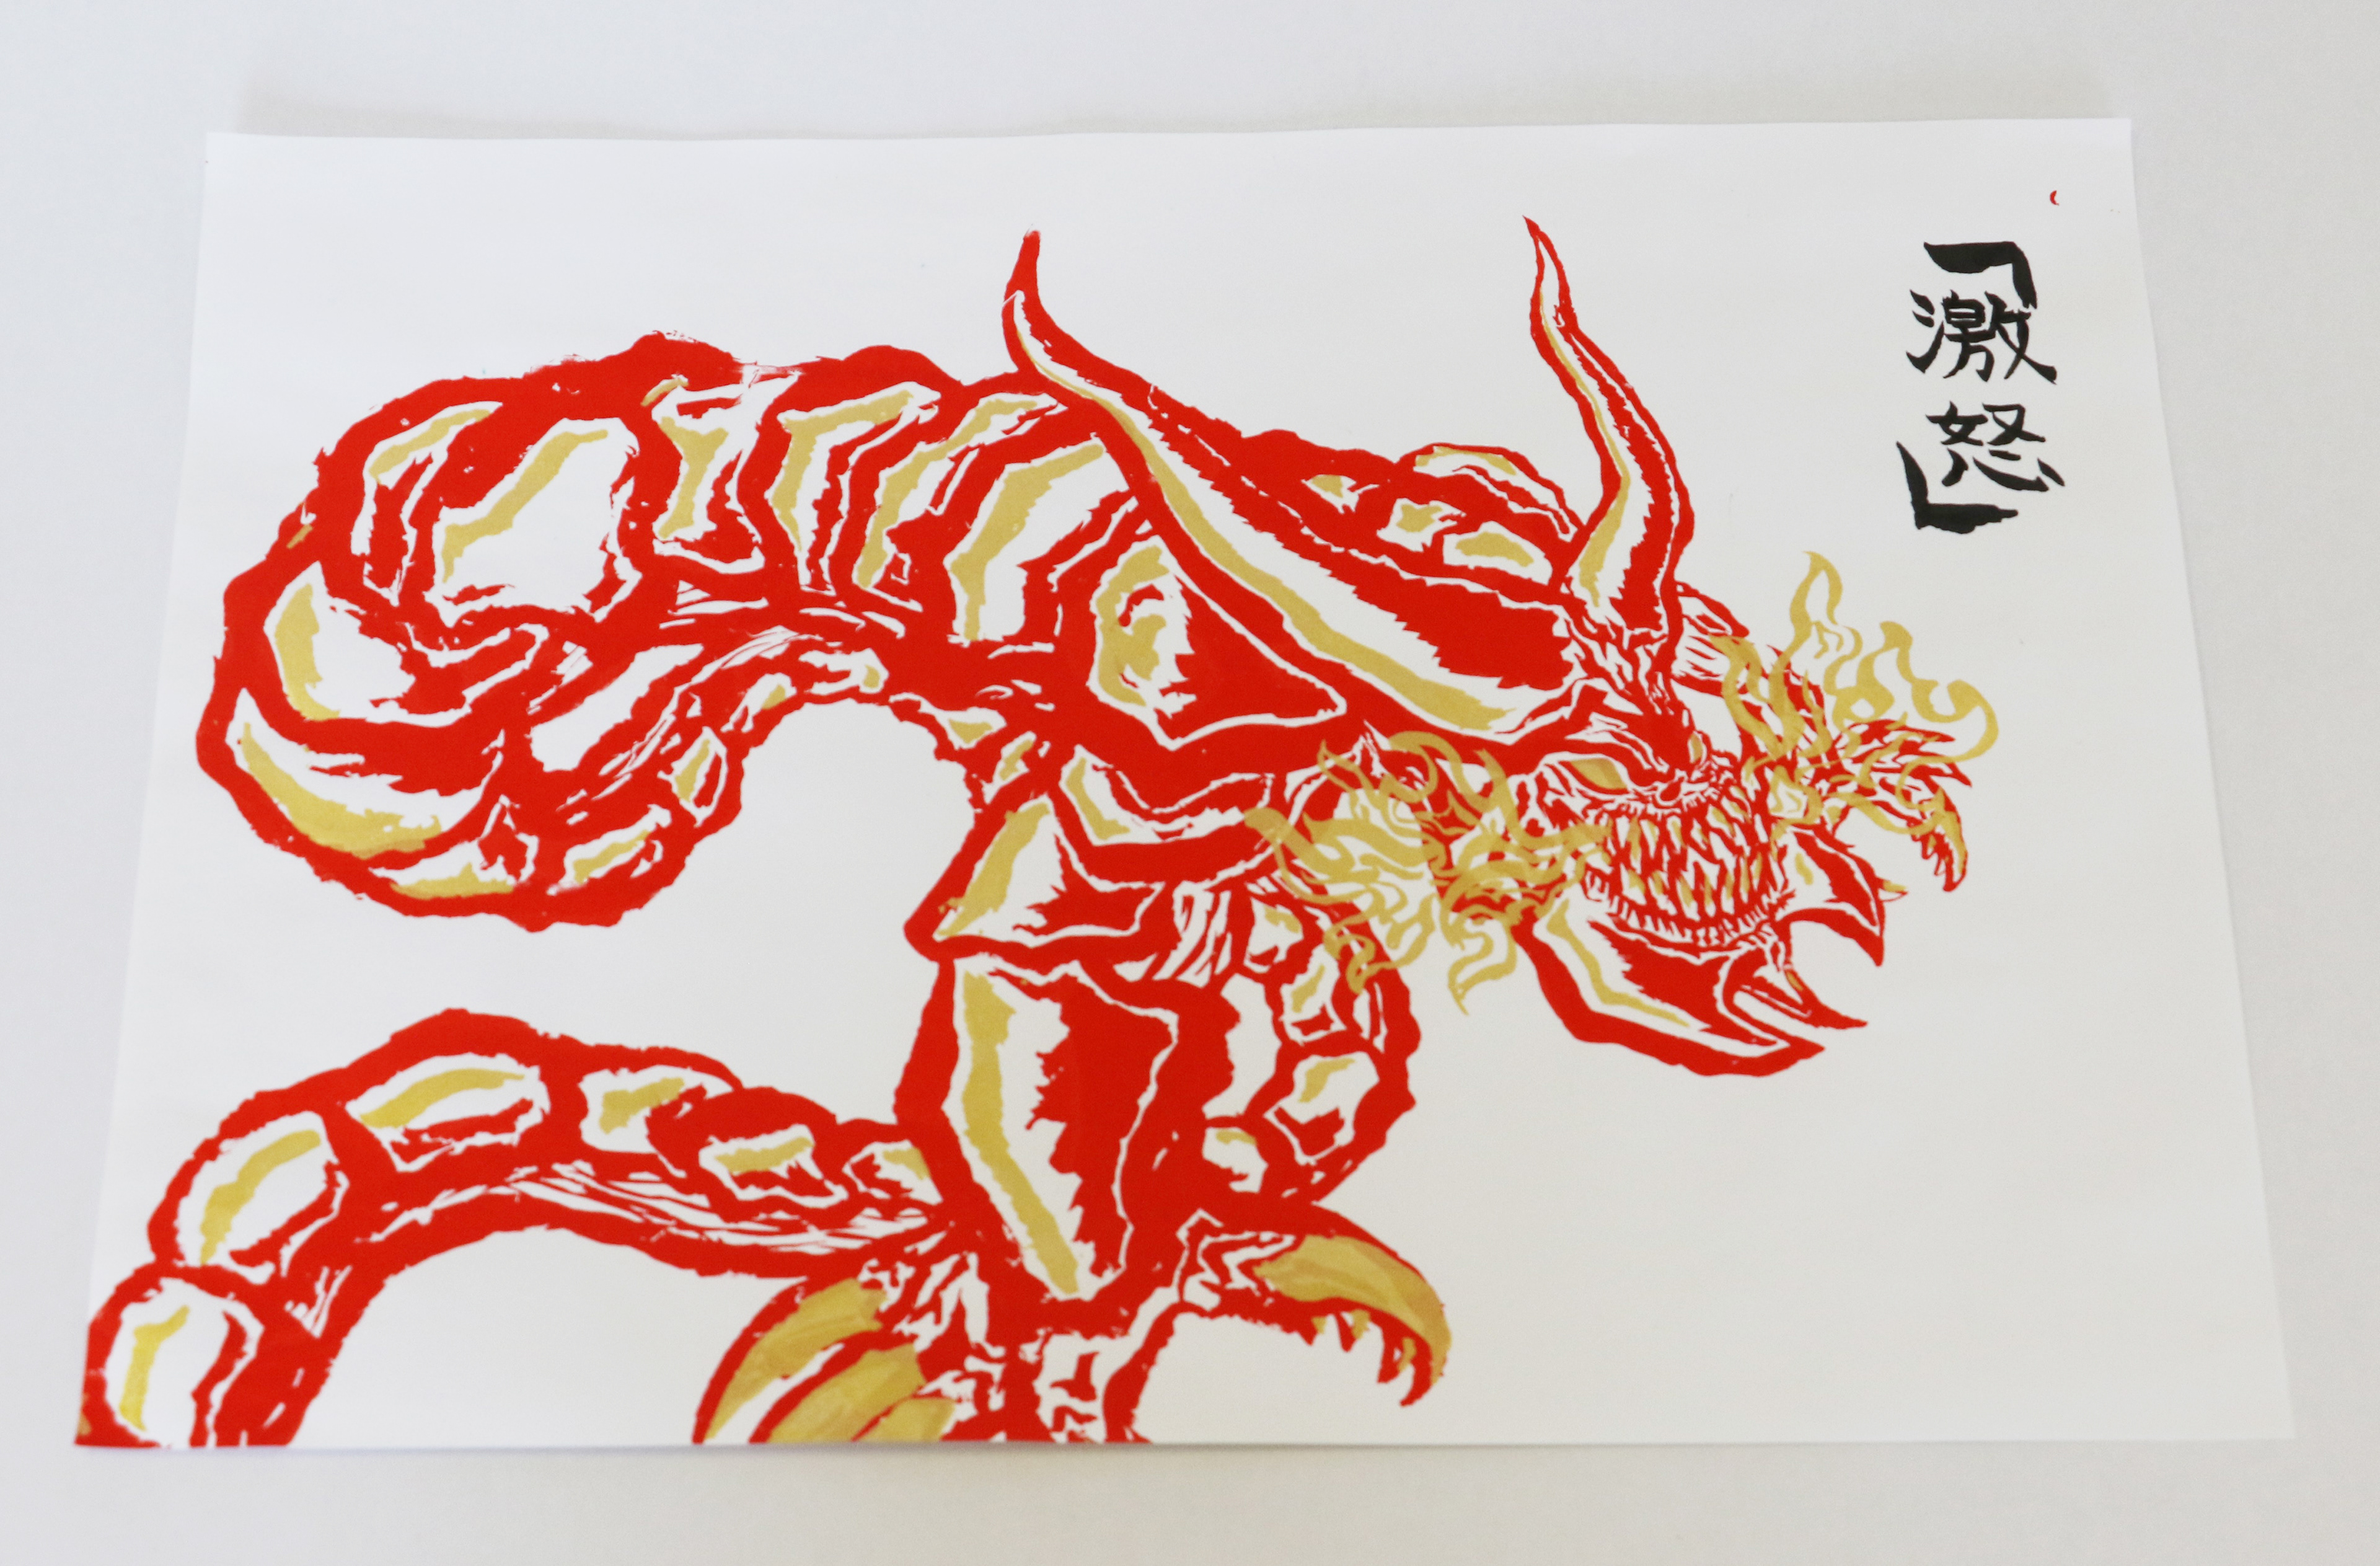 『激怒』